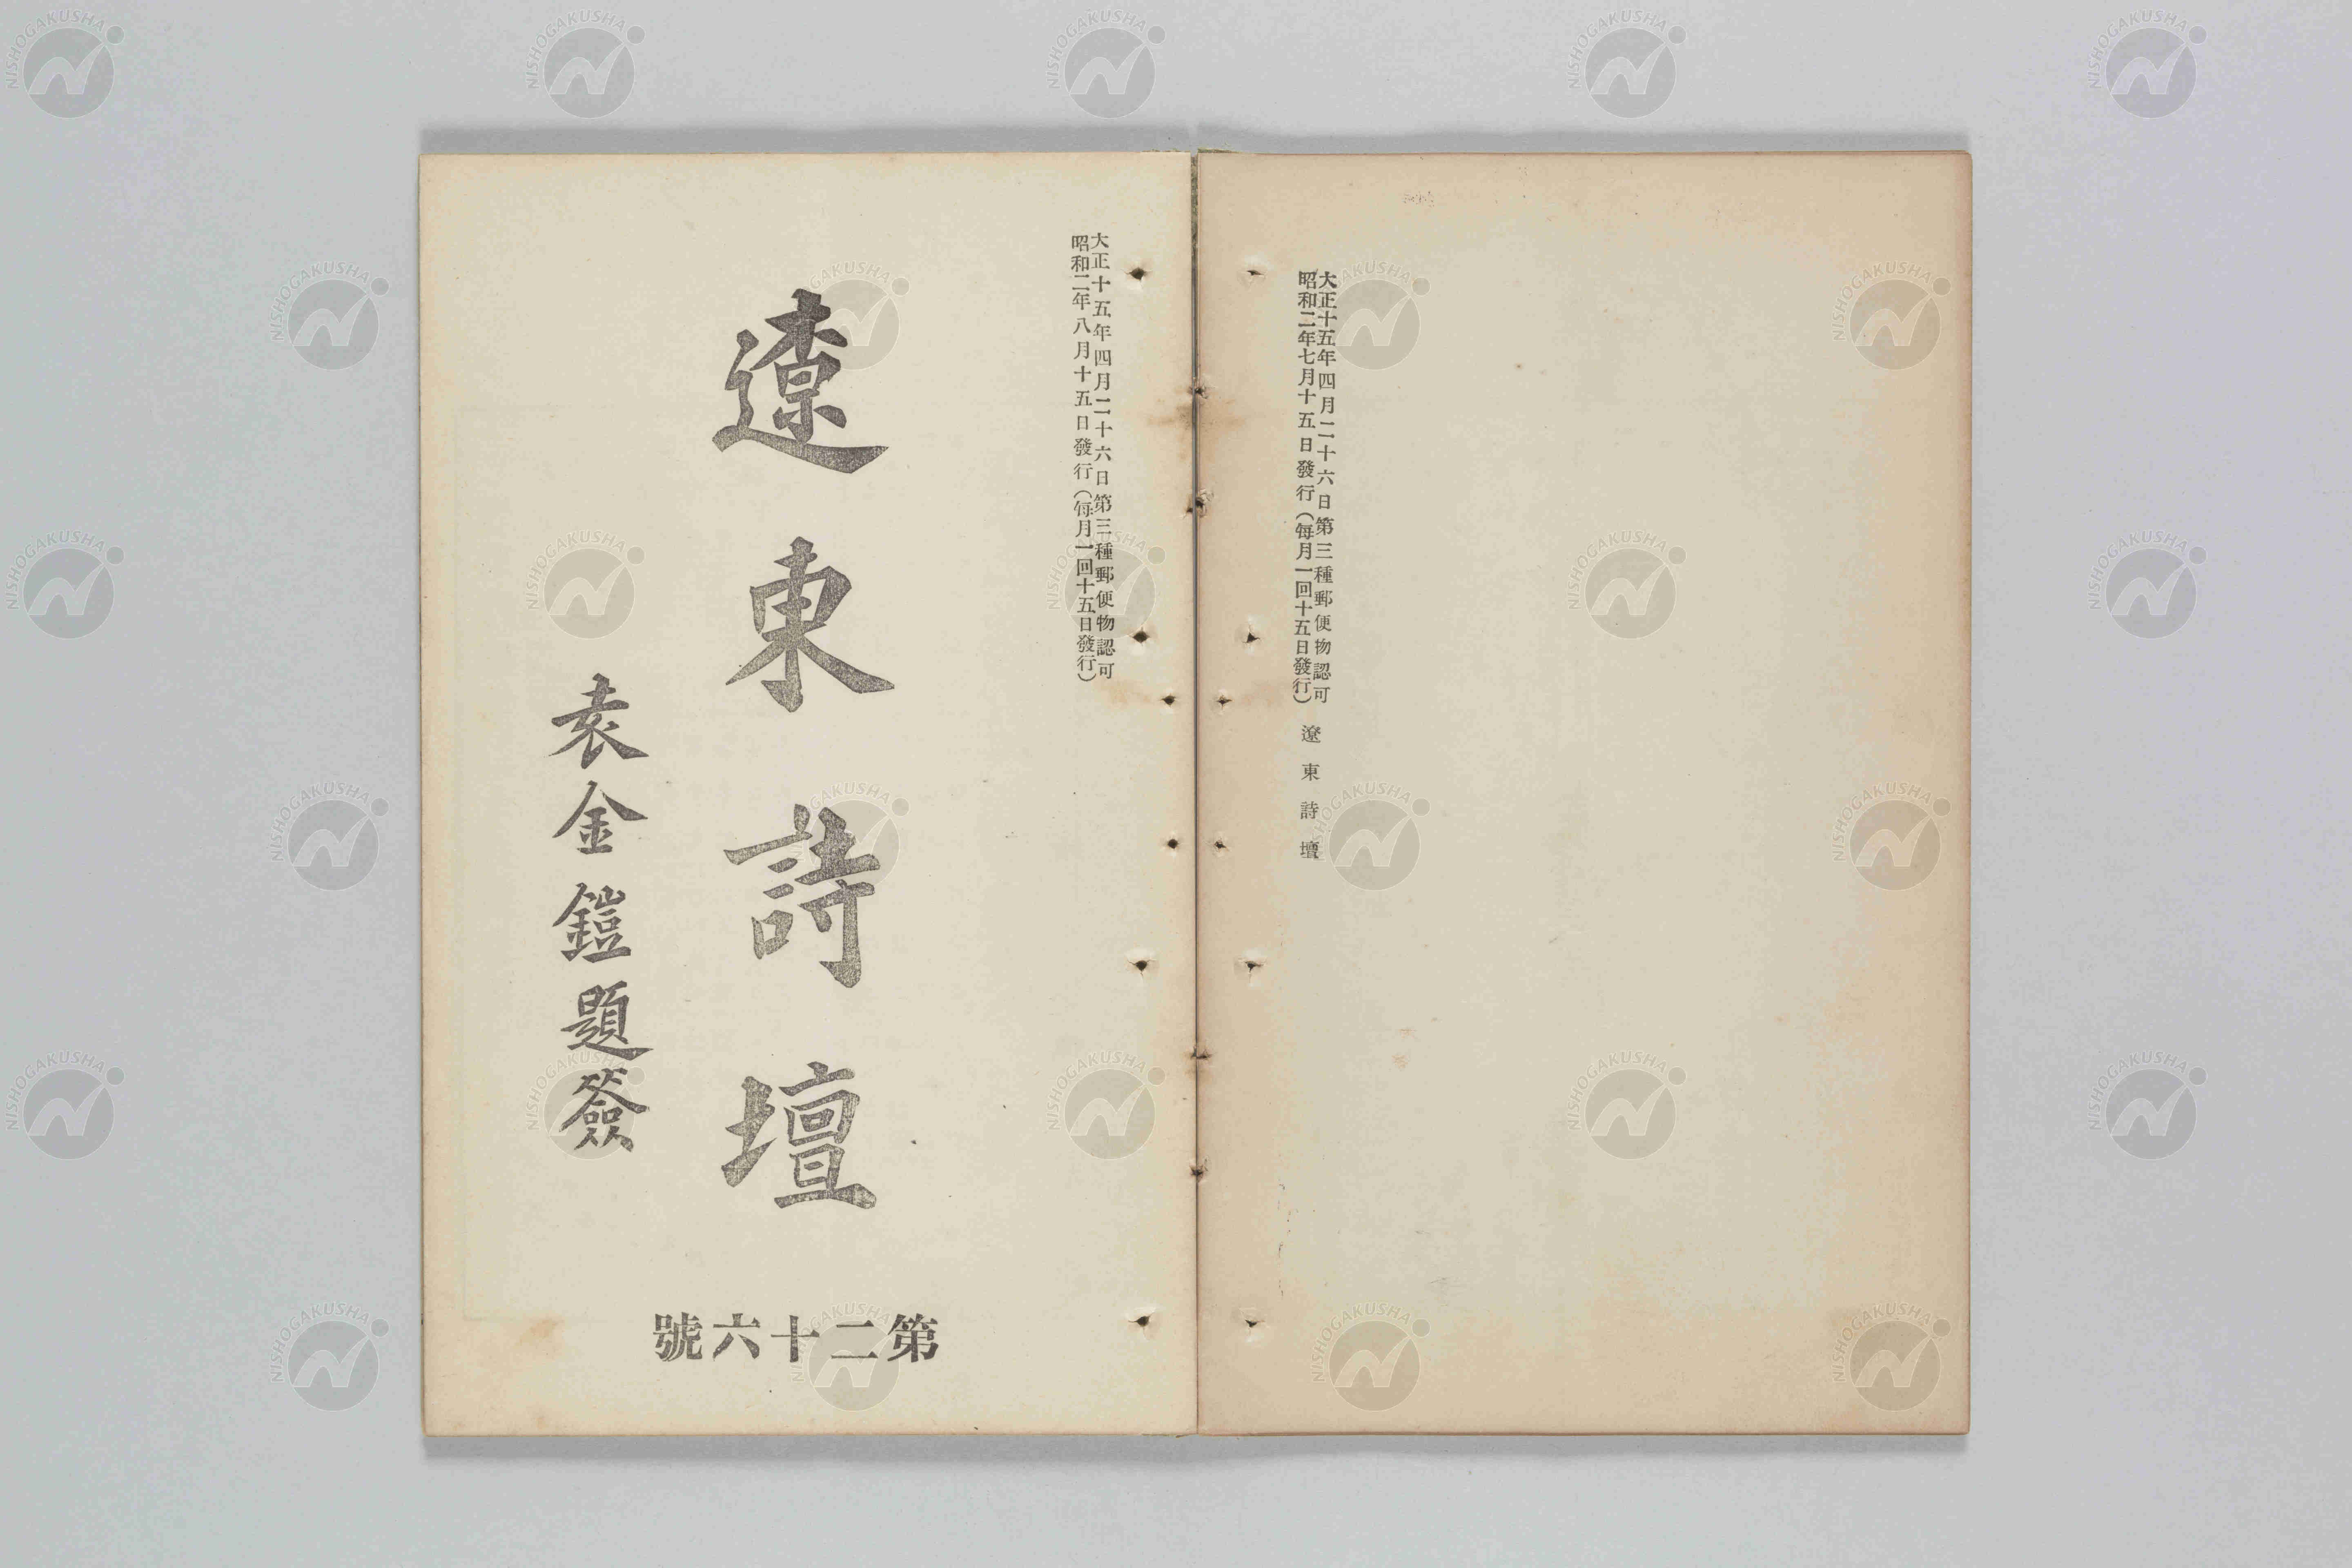 大正十五年四月二十六日第三種郵便物認可
昭和二年七月十五日發行（每月一回十五日發行）
遼東詩壇
大正十五年四月二十六日第三種郵便物認可
昭和二年八月十五日發行（每月一回十五日發行）
遼東詩壇
袁金鎧題簽
第二十六號
NISHOGAKUSHA